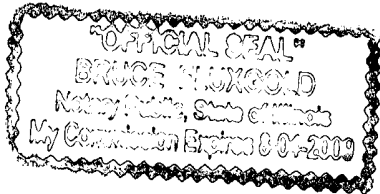 "OFFICIAL SEAL"
BRUCE FLUXGOLD
Notary Public, State of Illinois
My Commission Expires 8-04-2009